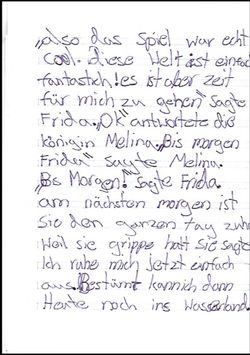 „also das Spiel war echt
cool. diese Welt ist einfach
fantastich! es ist aber zeit
für mich zu gehen" sagte
Frida. „OK" antwortete die
königin Melina. „Bis morgen
Frida" sagte Melina.
„Bis Morgen!" sagte Frida.
am nächsten morgen ist
Sie den ganzen tag zuh
Weil sie grippe hatt sie sagte
Ich ruhe mich jetzt einfach
aus. Bestimt kann ich dann
Heute noch ins Wasserland.